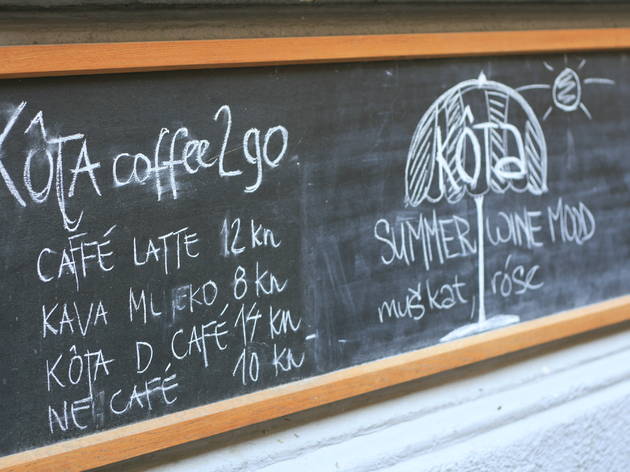 KÔTA coffee2go
CAFFÉ LATTE 12 kn
KAVA 8 kn
KÔTA D CAFÉ 14 kn
CAFÉ 10 kn
KÔTA
SUMMER WINE MOOD
muškat, róse